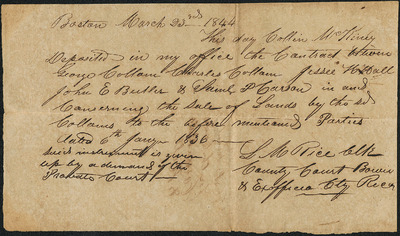 Boston March 23rd 1844
This day Collin McKiney
Deposited in my office the Contract between
George Collom Charles Collom Jessee H Ball
John E Butler & Saml P Carson in and
Concerning the Sale of Lands by the sd
Colloms to the before mentioned Parties
dated 6th Jany 1836
said instrument is given
up by a demand of the
Probate Court
S M Rice Clk
County Court Bowie
& Exofficio Cty Recr